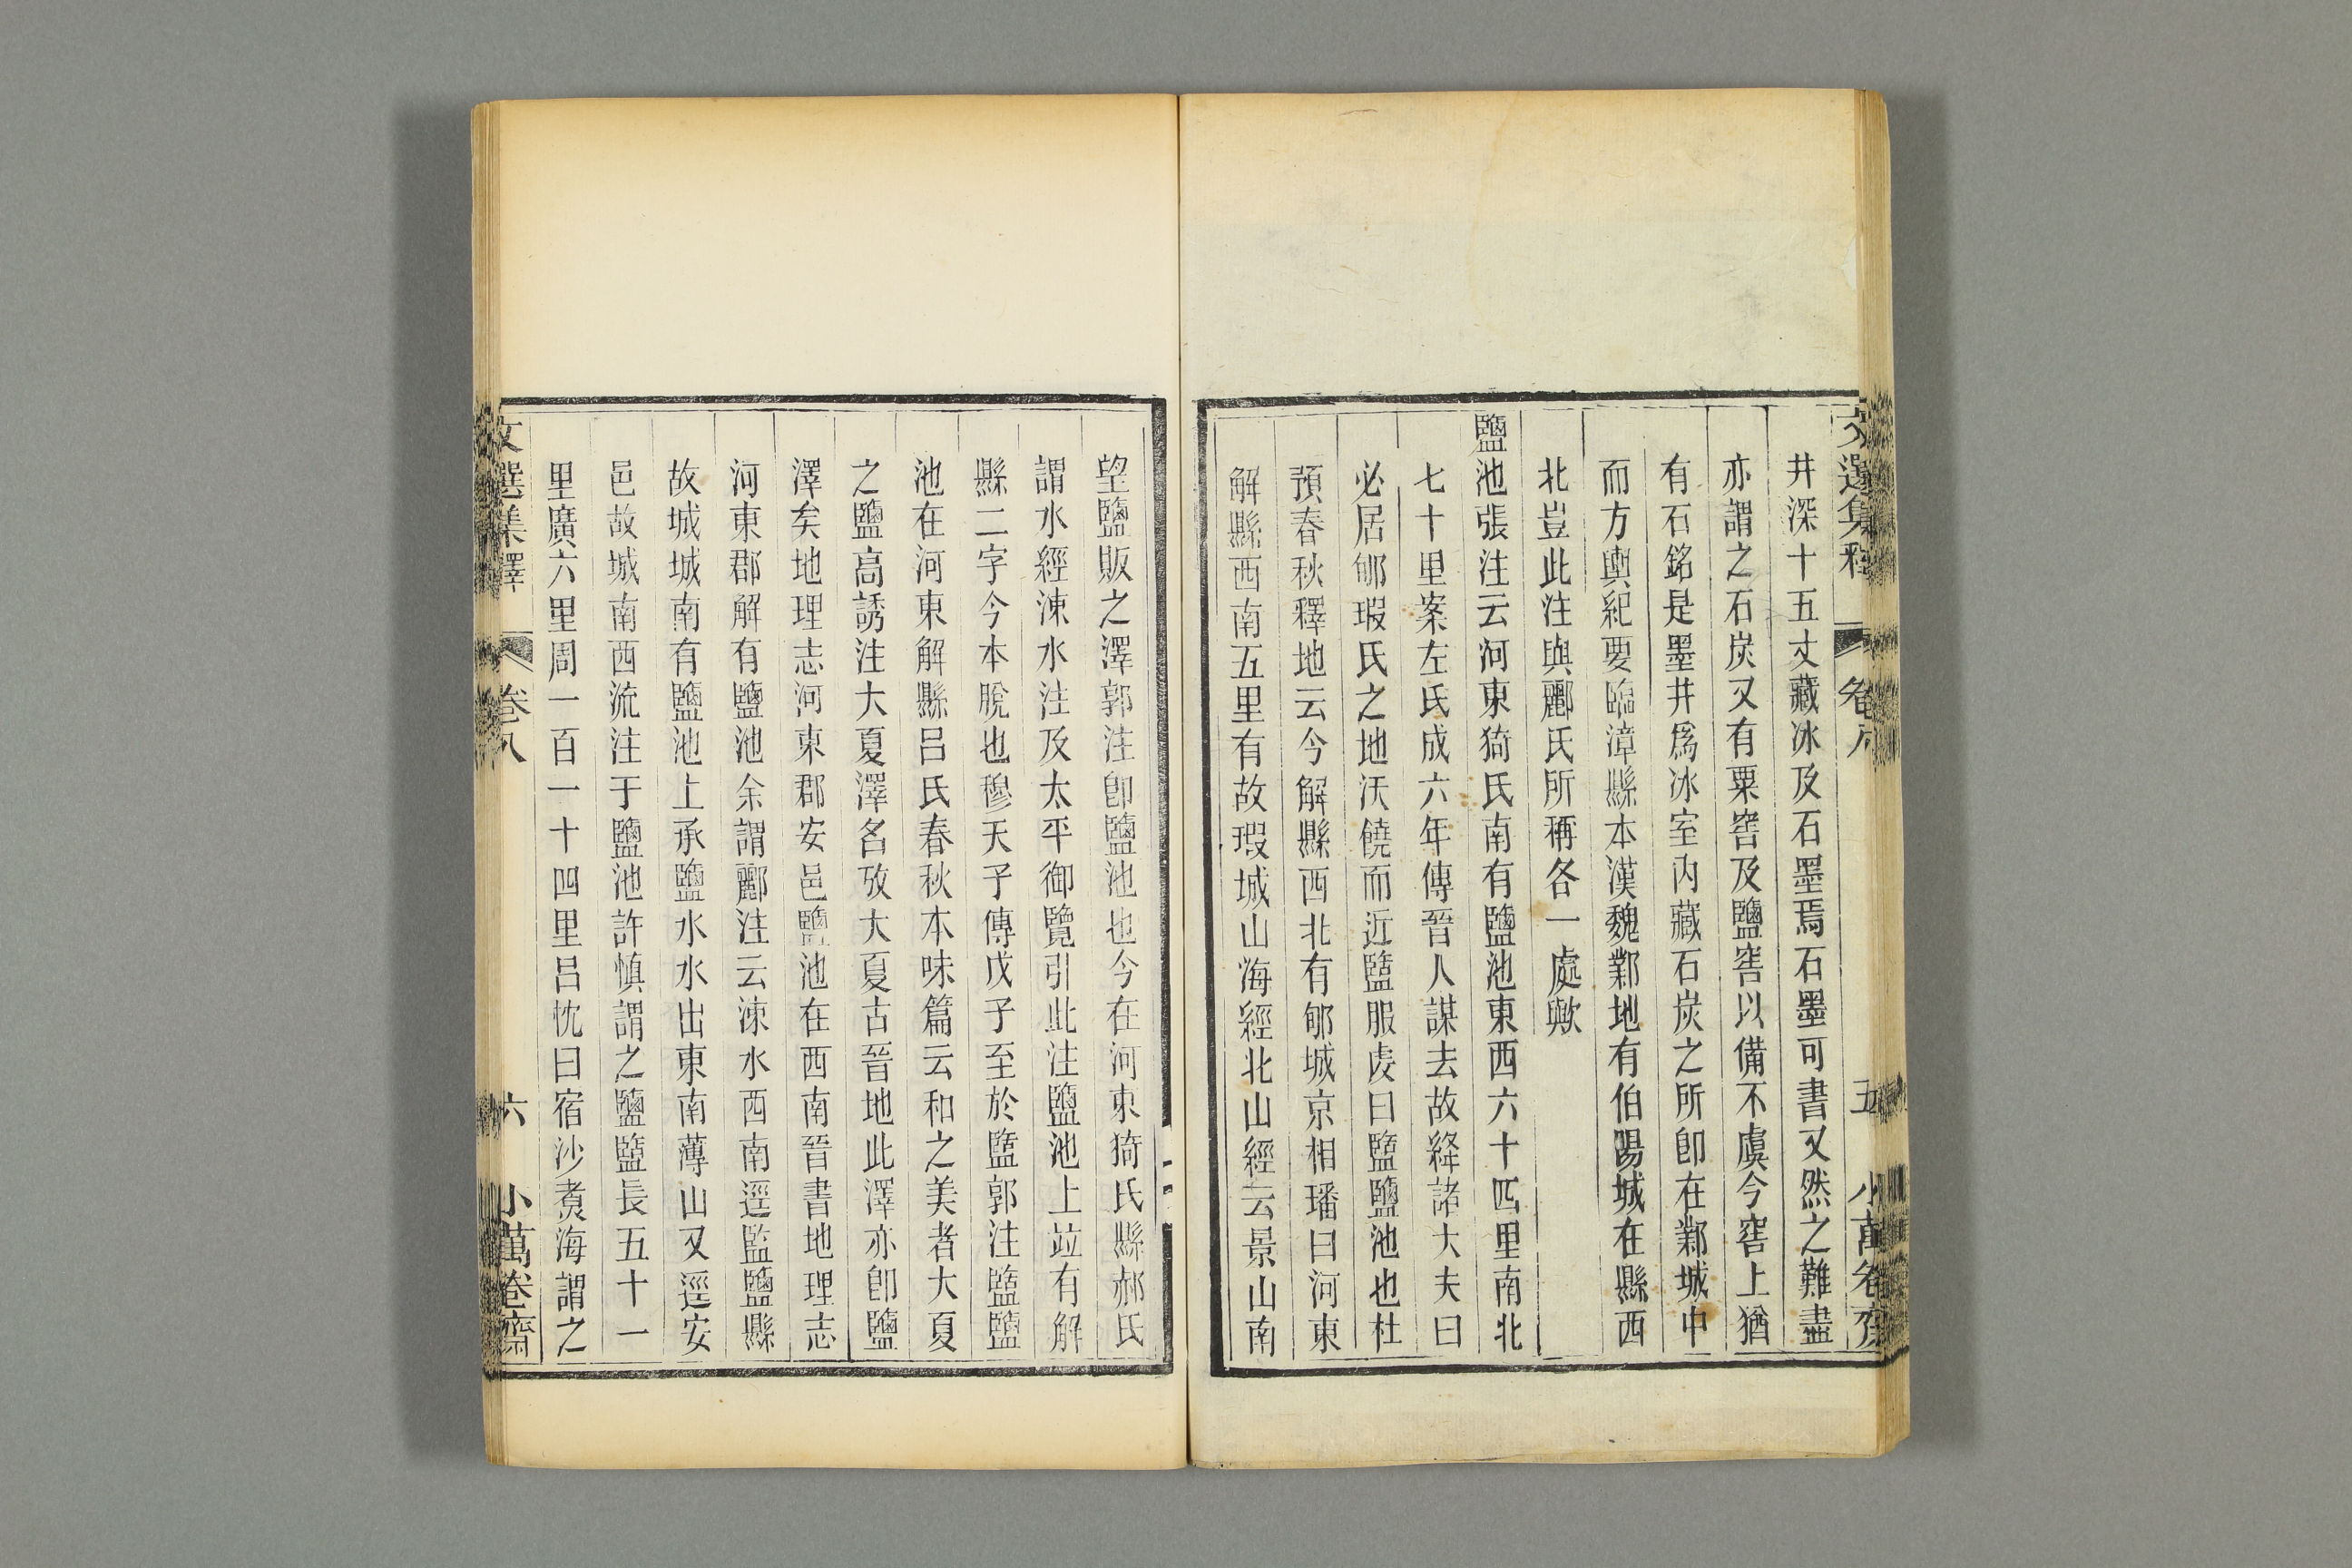 文選集釋 卷八 五 小萬卷齋
井深十五丈藏冰及石墨焉石墨可書又然之難盡
亦謂之石炭又有粟窖及鹽窖以備不虞今窖上猶
有石銘是墨井爲冰室內藏石炭之所卽在鄴城中
而方輿紀要臨漳縣本漢魏鄴地有伯陽城在縣西
北豈此注與酈氏所稱各一處歟
鹽池張注云河東猗氏南有鹽池東西六十四里南北
七十里案左氏成六年傳晉人謀去故絳諸大夫曰
必居郇瑕氏之地沃饒而近盬服虔曰盬鹽池也杜
預春秋釋地云今解縣西北有郇城京相璠曰河東
解縣西南五里有故瑕城山海經北山經云景山南
望鹽販之澤郭注卽鹽池也今在河東猗氏縣郝氏
謂水經涑水注及太平御覽引此注鹽池上竝有解
縣二字今本脫也穆天子傳戊子至於盬郭注盬鹽
池在河東解縣呂氏春秋本味篇云和之美者大夏
之鹽高誘注大夏澤名攷大夏古晉地此澤亦卽鹽
澤矣地理志河東郡安邑鹽池在西南晉書地理志
河東郡解有鹽池余謂酈注云涑水西南逕監鹽縣
故城城南有鹽池上承鹽水水出東南薄山又逕安
邑故城南西流注于鹽池許愼謂之鹽盬長五十一
里廣六里周一百一十四里呂忱曰宿沙煑海謂之
文選集釋 卷八 六 小萬卷齋